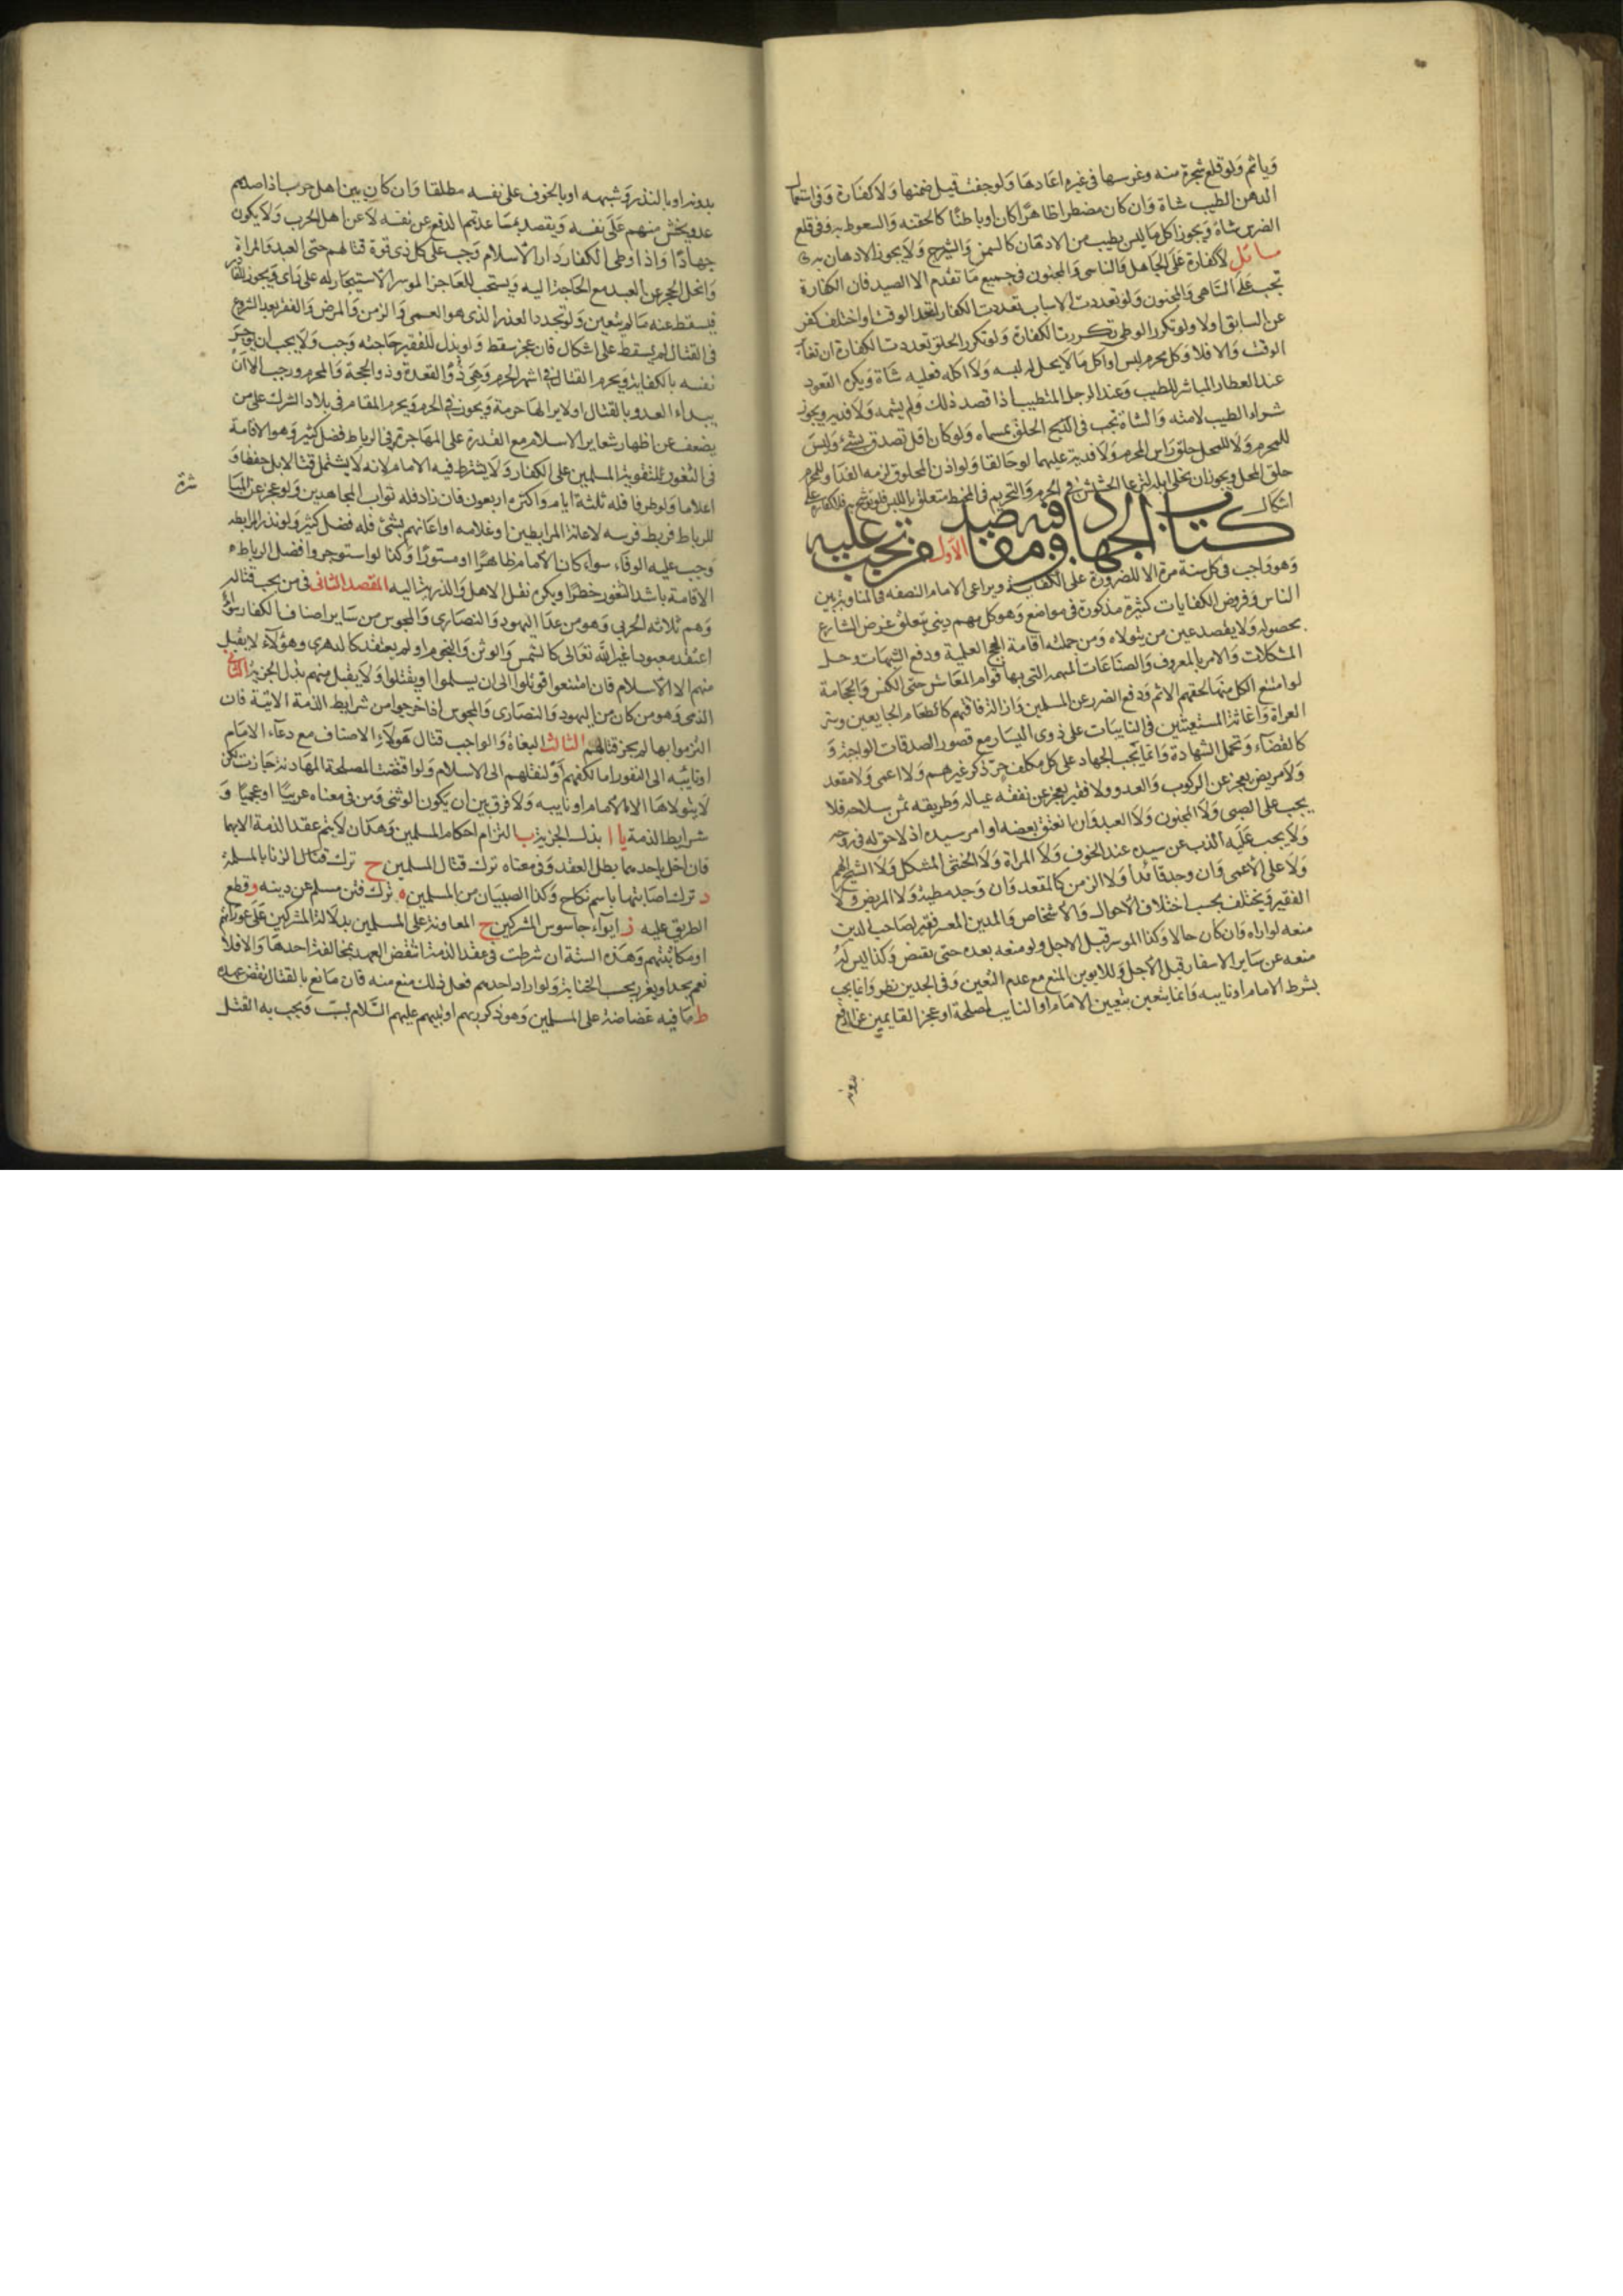 وياثم ولو قلع شجرة منه وغرسها في غيره اعادها ولو جفت قيل ضمنها ولا كفارة وفي استعمال
الدهن الطيب شاة وان كان مضطرا ظاهرا كان او باطنا كالحقنه والسعوط به وفي قلع
الضرس شاة ويجوز اكل ما ليس بطيب من الادهان كالسمن والشيرج ولا يجوز الادهان به
مسائل لا كفارة على الجاهل والناسي والمجنون في جميع ما تقدم الا الصيد فان الكفارة
تجب على الساهي والمجنون ولو تعددت الاسباب تعددت الكفارة اتحد الوقت او اختلف كفر
عن السابق اولا ولو تكرر الوطي تكررت الكفارة ولو تكرر الحلق تعددت الكفارة ان تغاير
الوقت والا فلا وكل محرم لبس او اكل ما لا يحل له لبسه ولا اكله فعليه شاة ويكره القعود
عند العطار المباشر للطيب وعند الرجل المتطيب اذا قصد ذلك ولم يشمه ولا فديه ويجوز
شراء الطيب لا مسه والشاة تجب في الحلق بمسماه ولو كان اقل تصدق بشيء وليس
للمحرم ولا للمحل حلق راس المحرم ولا فدية عليهما لو خالفا ولو اذن المحلوق لزمه الفداء وللمحرم
حلق المحل ويجوز ان يخلي ابله لترعى الحشيش في الحرم والتحريم في المخيط متعلق باللبس فلو توشح به فلا كفارة على
اشكال
كتاب الجهاد وفيه مقاصد الاول فيمن تجب عليه
وهو واجب في كل سنة مرة الا لضرورة على الكفاية ويراعي الامام النصفه في المناوبة بين
الناس وفروض الكفايات كثيرة مذكورة في مواضع وهو كل مهم ديني يتعلق غرض الشارع
بحصوله ولا يقصد عين من يتولاه ومن جملته اقامة الحجج العلمية ودفع الشبهات وحل
المشكلات والامر بالمعروف والصناعات المهمه التي بها قوام المعاش حتى الكنس والحجامة
لو امتنع الكل منها لحقهم الاثم ودفع الضرر عن المسلمين وازالة فاقتهم كاطعام الجايعين وستر
العراة واغاثة المستغيثين في النايبات على ذوي اليسار مع قصور الصدقات الواجبة و
كالقضاء وتحمل الشهادة وانما يجب الجهاد على كل مكلف حر ذكر غير هم ولا اعمى ولا مقعد
ولا مريض يعجز عن الركوب والعدو ولا فقير يعجز عن نفقة عياله وطريقه ثمن سلاحه فلا
يجب على الصبي ولا المجنون ولا العبد وان انعتق بعضه او امر سيده اذ لا حق له في روحه
ولا يجب عليه الذب عن سيده عند الخوف ولا المراة ولا الخنثى المشكل ولا الشيخ الهم
ولا على الاعمى وان وجد قائدا ولا الزمن كالمقعد وان وجد مطية ولا المريض ولا
الفقير ويختلف بحسب اختلاف الاحوال والاشخاص والمدين المعسر فقير لصاحب الدين
منعه لو اراه وان كان حالا وكذا الموسر قبل الاجل ولو منعه بعده حتى يقتضي وكذا ليس له
منعه عن ساير الاسفار قبل الاجل وللابوين المنع مع عدم التعين وفي الجدين نظر وانما يجب
بشرط الامام او نايبه وانما يتعين بتعيين الامام او النايب لمصلحة او عجز القايمين عن الدفع
بدونه
بدونه او بالنذر وشبهه او بالخوف على نفسه مطلقا وان كان بين اهل حرب اذا صدمهم
عدو يخشى منهم على نفسه ويقصد بمساعدتهم الدفع عن نفسه لا عن اهل الحرب ولا يكون
جهادا واذا وطى الكفار دار الاسلام وجب على كل ذي قوة قتالهم حتى العبد والمراة
وانحل الحجر عن العبد مع الحاجة اليه ويستحب للعاجز الموسر الاستيجار له على راي ويجوز للقادر
فيسقط عنه ما لم يتعين ولو تجدد العذر الذي هو العمى والزمن والمرض والفقر بعد الشروع
في القتال لم يسقط على اشكال فان عجز سقط ولو بذل للفقير حاجته وجب ولا يجب ان يوجر
نفسه بالكفاية ويحرم القتال في اشهر الحرم وهي ذو القعدة وذو الحجة والمحرم ورجب الا ان
يبداء العدو بالقتال او لا يرى لها حرمة ويجوز في الحرم ويحرم المقام في بلاد الشرك على من
يضعف عن اظهار شعاير الاسلام مع القدرة على المهاجرة وفي الرباط فضل كثير وهو الاقامة
في الثغور لتقوية المسلمين على الكفار ولا يشترط فيه الامام لانه لا يشتمل قتالا بل حفظا و
اعلاما وله طرفا قله ثلثة ايام واكثره اربعون فان زاد فله ثواب المجاهدين ولو عجز عن المبا
شرة
للرباط فربط فرسه لاعانة المرابطين او غلامه او اعانهم بشيء فله فضل كثير ولو نذر المرابطه
وجب عليه الوفاء سواء كان الامام ظاهرا او مستورا وكذا لو استوجر وافضل الرباط
الاقامة باشد الثغور خطرا ويكره نقل الاهل والذرية اليه المقصد الثاني في من يجب قتاله
وهم ثلاثه الحربي وهو من عدا اليهود والنصارى والمجوس من ساير اصناف الكفار سواء
اعتقد معبودا غير الله تعالى كالشمس والوثن والنجوم او لم يعتقد كالدهري وهؤلاء لا يقبل
منهم الا الاسلام فان امتنعوا قوتلوا الى ان يسلموا او يقتلوا ولا يقبل منهم بذل الجزية الثاني
الذمي وهو من كان من اليهود والنصارى والمجوس اذا خرجوا من شرايط الذمة الاتية فان
التزموا بها لم يجز قتالهم الثالث البغاة والواجب قتال هولاء الاصناف مع دعاء الامام
او نايبه الى النفور اما لكفهم او لنقلهم الى الاسلام ولو اقتضت المصلحة المهادنة جاز لكن
لا يتولاها الا الامام او نايبه ولا فرق بين ان يكون الوثني ومن في معناه عربيا او عجميا و
شرايط الذمة يا ا بذل الجزية ب التزام احكام المسلمين وهذان لا يتم عقد الذمة الا بهما
فان اخل باحدهما بطل العقد وفي معناه ترك قتال المسلمين ح ترك الزنا بالمسلمة
د ترك اصابتها باسم نكاح وكذا الصبيان من المسلمين ه ترك فتن مسلم عن دينه و قطع
الطريق عليه ز ايواء جاسوس المشركين ح المعاونة على المسلمين بدلالة المشركين على عوراتهم
او مكاتبتهم وهذه الستة ان شرطت في عقد الذمة انتقض العهد بمخالفة احدها والا فلا
نعم يحد او يعزر بحسب الجناية ولو اراد احدهم فعل ذلك منع منه فان مانع بالقتال نقض عهده
ط ما فيه غضاضة على المسلمين وهو ذكر ربهم او نبيهم عليهم السلام بسب ويجب به القتل